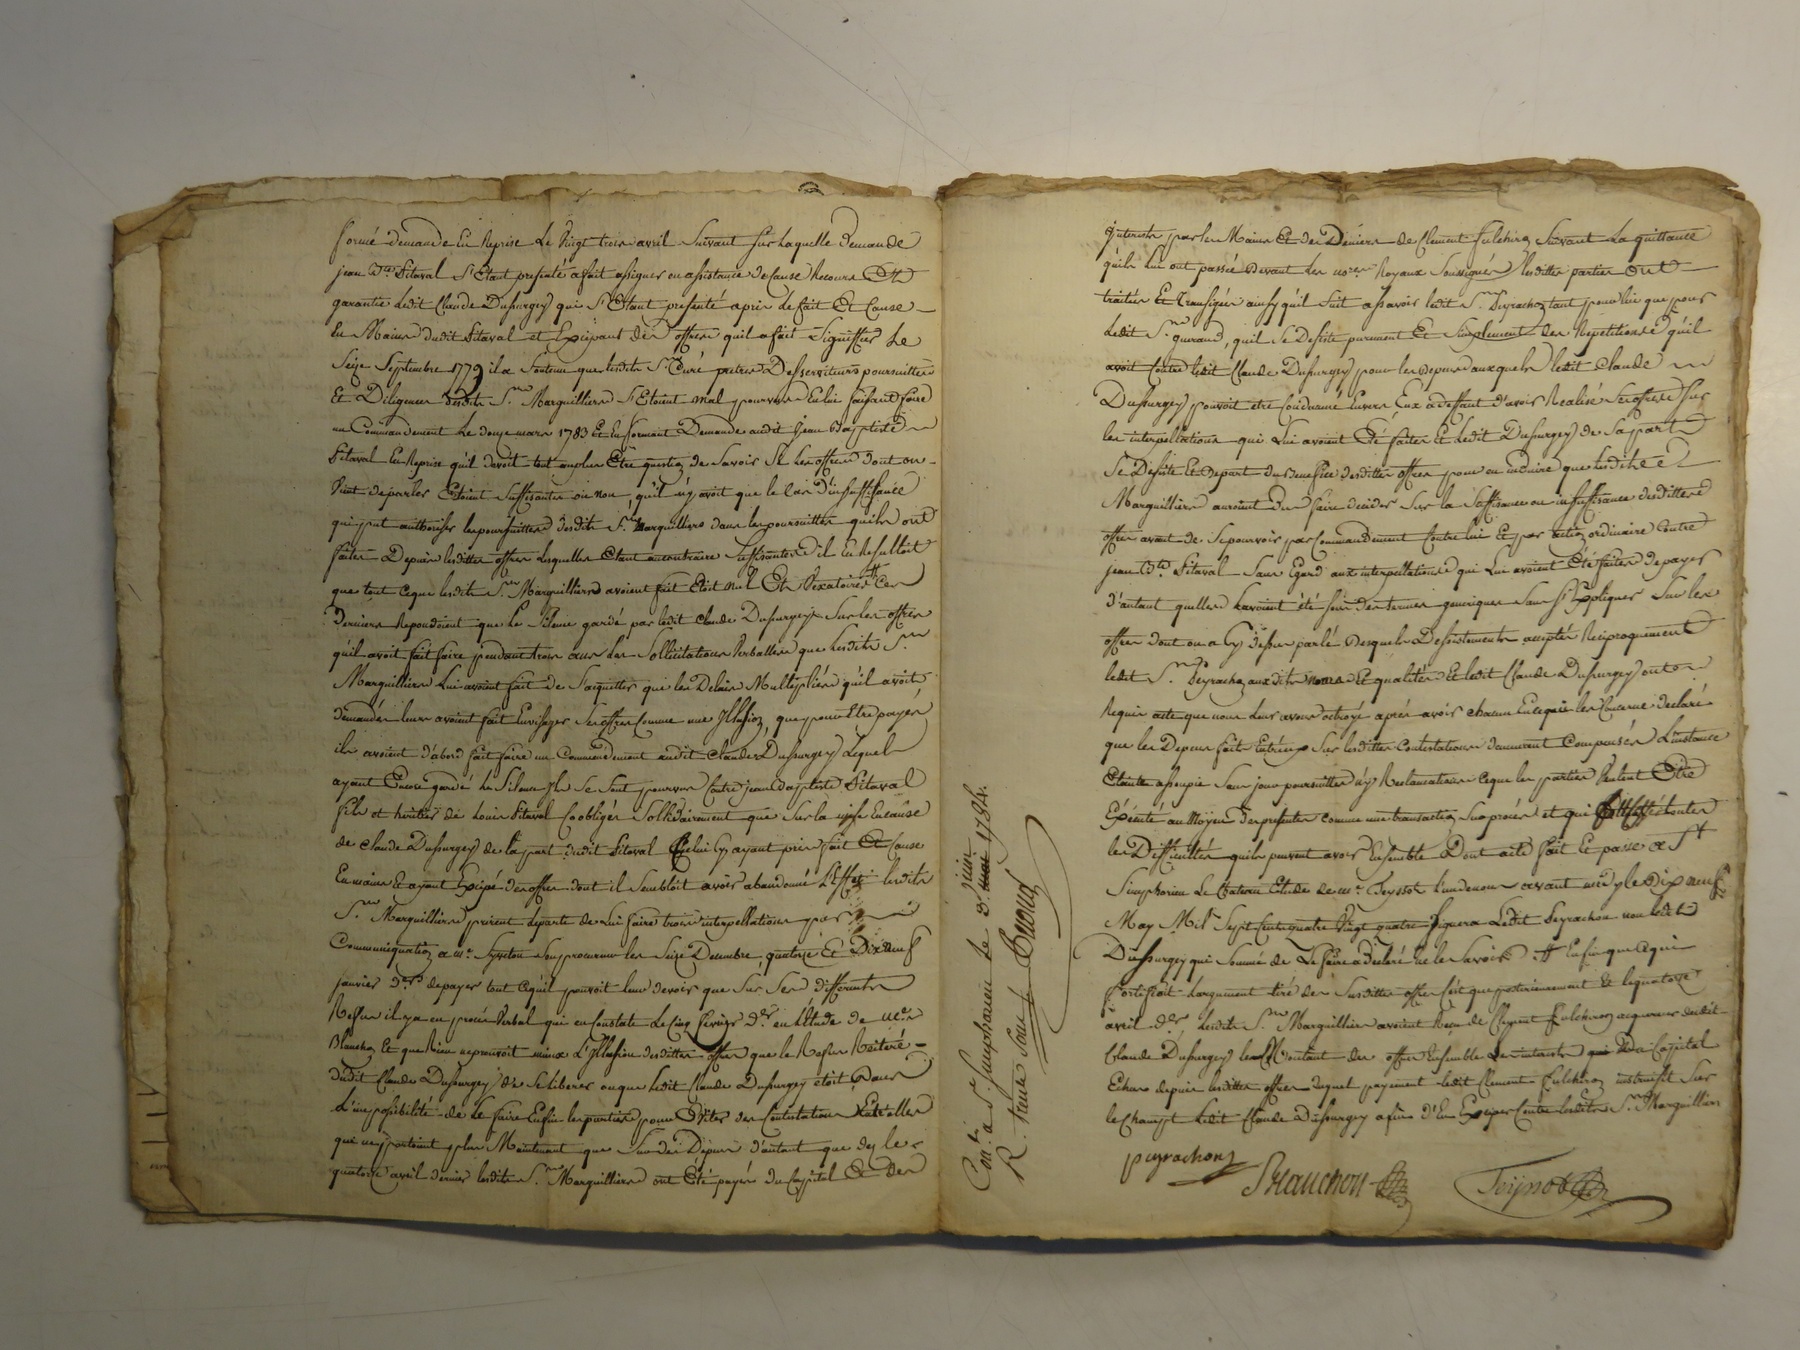 formé demande En Reprise Le Vingt trois avril Suivant Sur Laquelle Demande
jean Bte Pitaval S'Etant presenté a fait assigner en assistance de Cause Recours Et
garantie Ledit Claude Dussurgey qui S'Etant presenté a pris le fait Et Cause
En Mains dudit Pitaval et Excipant des offres quil a fait Signiffier Le
Seize Septembre 1779 il a Soutenu que lesdits Srs Curé pretres Desserviteurs poursuittes
Et Diligences desdits Srs Marguilliers S'Etoient mal pourvus En lui faisant faire
un Commandement Le douze mars 1783 Et En formant Demande audit Jean Baptiste
Pitaval En Reprise qu'il devoit tout au plus Être question de Savoir Si Les offres dont on
Vient de parler Etoient Suffisantes ou non, qu'il n'y avoit que le Cas d'insuffisance
qui put authoriser les poursuittes desdits Srs Marguilliers dans les poursuittes quils ont
faites Depuis lesdittes offres Lesquelles Etant au contraire Suffisantes il En Resultoit
que tout ce que lesdits Srs Marguilliers avoient fait Etoit nul Et Vexatoire # Ces
Derniers Repondoient que Le Silence gardé par ledit Claude Dussurgey Sur les offres
qu'il avoit fait faire pendant trois ans Les Sollicitations Verballes que Lesdits Srs
Marguilliers Lui avoient fait de S'aquitter que les Delais Multipliés qu'il avoit
demandés leurs avoient fait Envisager Ses offres Comme une Illusion, que pour Etre payés
ils avoient d'abord fait faire un Commandement audit Claude Dussurgey Lequel
ayant Encore gardé Le Silence Ils Se Sont pourvus Contre jean Baptiste Pitaval
fils et heritier de Louis Pitaval Coobligés Sollidairement que Sur la mise En cause
de Claude Dussurgey de la part dudit Pitaval Celui Cy ayant pris fait Et Cause
En mains Et ayant Excipé des offres dont il Sembloit avoir abandonné L'Effet lesdits
Srs Marguilliers prirent le parti de Lui faire trois interpellations par
Communiquation a me Syveton Son procureur les Seize Decembre, quatorze Et Dix neuf
janvier ders de payer tout ce quil pouvoit leur devoir que Sur Ses differents
Refus il y a un procès Verbal qui En Constate Le Cinq fevrier Der en L'Etude de me
Blanchon Et que Rien ne prouvoit mieux L'Illusion desdittes offres que le Refus Reiteré
dudit Claude Dussurgey de Se liberer ou que ledit Claude Dussurgey étoit dans
L'impossibilité de Le faire Enfin les parties pour Eviter des Contestations Entr'elles
qui ne portoient plus Maintenant que Sur des Depens d'autant que dès le
quatorze avril dernier lesdits Srs Marguilliers ont Eté payés du Capital Et des
Cont. a St. Simphorien le 3. juin 1784.
R. trente Sous
interests par les Mains Et des Deniers de Clement fulchiron Suivant La quittance
qu'ils Lui ont passée Devant Les nores Royaux Soussignés lesdittes parties ont
traitées Et transigées ainsy qu'il Suit assavoir ledit Sr Peyrachon tant pour lui que pour
Ledit Sr guerand, quil Se Desiste purement Et Simplement des Repetitions qu'il
avoit Contre ledit Claude Dussurgey pour les depens auxquels ledit Claude
Dussurgey pouvoit etre Condamné Envers Eux a deffaut d'avoir Realisé Ses offres Sur
les interpellations qui Lui avoient Eté faites Et ledit Dussurgey de Sa part
Se Desiste Et depart du Benefice desdittes offres pour en induire que lesdits
Marguilliers auroient Du faire decider Sur la Suffisance ou insuffisance desdittes
offres avant de Se pourvoir par Commandement Contre lui Et par action ordinaire Contre
jean Bte Pitaval Sans Egard aux interpellations qui Lui avoient Eté faites de payer
d'autant quelles n'avoient été que des termes generiques Sans S'Expliquer Sur Les
offres dont on a Cy Dessus parlé Desquels Desistements acceptés Reciproquement
ledit Sr Peyrachon auxdits noms Et qualités Et ledit Claude Dussurgey ont
Requis acte que nous Leurs avons octroyé après avoir chacun En ce qui les Concerne declaré
que les Depens faits Entr'eux Sur lesdittes Contestations demeurent Compensés L'instance
Eteinte assoupie Sans jour poursuittes ny Reclamations Ce que les parties Veulent Être
Executé au Moyen des presentes comme une transaction Sur procès et qui
les Difficultés quils peuvent avoir Ensemble Dont acte fait Et passé a St
Simphorien Le Chateau Etude de me Teyssot L'un de nous avant midy le dix neuf
May Mil Sept Cent quatre Vingt quatre Signera Ledit Peyrachon non ledit
Dussurgey qui Sommé de Le faire a declaré Ne le Savoir # Enfin que ce qui
fortifioit L'argument tiré des Susdittes offres C'est que posterieurement Et le quatorze
avril der lesdits Srs Marguilliers avoient Reçu de Clement fulchiron acquereur dudit
Claude Dussurgey le Montant des offres Ensemble Les interests du Capital
Echus depuis lesdittes offres Duquel payement ledit Clement fulchiron instruisit Sur
le Champt Ledit Claude Dussurgey afin d'En Exciper Contre lesdits Srs Marguilliers
peyrachon
Blanchon
Teyssot